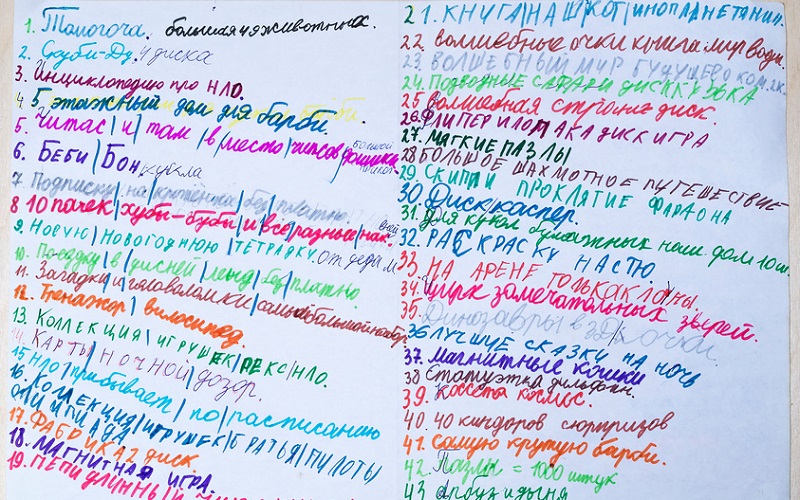 1. Талогоча. большая 4 я животных.
2. Скуби-Ду 4 диска
3. Инциклопедию про НЛО.
4 5 этажный дом для барби.
5. читас и там в место чипсов
6. БЕБИ БОН кукла
7. Подписки на котёнка без платно.
8 10 пачек хуби-буби и все разные нак.
9. НОВУЮ НОВОГОДНЮЮ ТЕТРАДКУ. от деды м
10. Поездку в дисней ленд без платно
11. Загадки и головаломки самый большой набор
12. Тренажор велосипед.
13. КОЛЛЕКЦИЯ ИГРУШЕК РЕКС НЛО.
14. КАРТЫ НОЧНОЙ ДОЗОР.
15 НЛО прибывает по расписанию
16. КОЛЛЕКЦИЯ ИГРУШЕК БРАТЬЯ ПИЛОТЫ
ОЛИМПИАДА
17. ФАБРИКА 2 диск.
18. МАГНИТНАЯ ИГРА.
19. ПЕПИ ДЛИННЫЙ
21. КНИГА НАШ КОТ ИНОПЛАНЕТАНИН.
22. волшебные очки книга мир воды.
23. ВОЛШЕБНЫЙ МИР БУДУЩЕГО КОМ. 2К.
24. Подводные САФАРИ ДИСК КУЗКА
25 волшебная строна диск.
26. ФЛИПЕР И ЛОПАКА ДИСК ИГРА
27. МЯГКИЕ ПАЗЛЫ
28 БОЛЬШОЕ ШАХМОТНОЕ ПУТЕШЕСТВИЕ
29. СКИПИ ПРОКЛЯТИЕ ФАРАОНА
30. Диск каспер.
31. для кукол бумажных наш. дом 10 ш.
32. РАСКРАСКУ НАСТЮ
33. НА АРЕНЕ ТОЛЬКА КЛОУНЫ.
34. Цирк замечательных зверей.
35. Динозавры в 3Д очки.
36 ЛУЧШИЕ СКАЗКИ НА НОЧЬ
37. МАГНИТНЫЕ КОШКИ
38 Статуэтка дильфин.
39. Кассета космос.
40. 40 киндоров сюрпризов
41. Самую крутую барби.
42. Пазлы = 1000 штук
43 арбуз и дыня